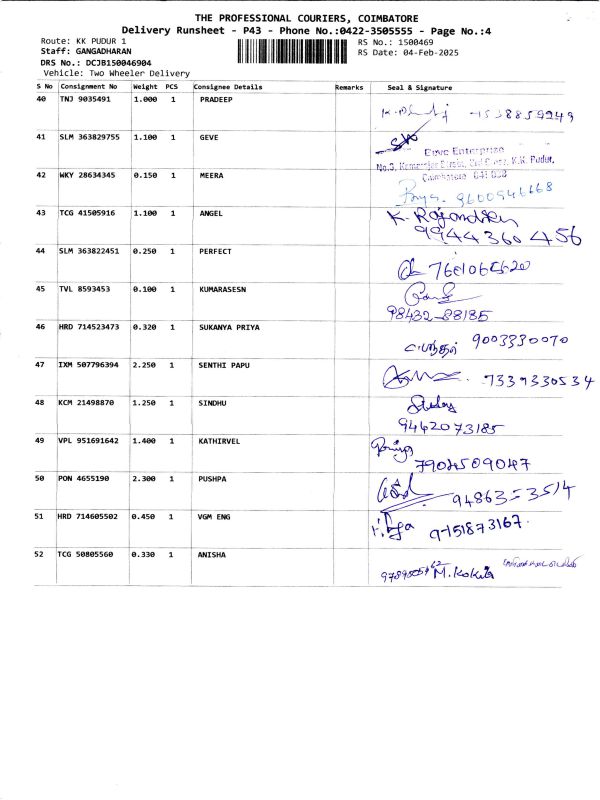 THE PROFESSIONAL COURIERS, COIMBATORE
Delivery Runsheet - P43 - Phone No.:0422-3505555 - Page No.:4
Route: KK PUDUR 1 RS No.: 1500469
Staff: GANGADHARAN RS Date: 04-Feb-2025
DRS No.: DCJB150046904
Vehicle: Two Wheeler Delivery
S No Consignment No Weight PCS Consignee Details Remarks Seal & Signature
40 TNJ 9035491 1.000 1 PRADEEP
41 SLM 363829755 1.100 1 GEVE
Geve Enterprise
42 WKY 28634345 0.150 1 MEERA
9600946668
43 TCG 41505916 1.100 1 ANGEL K. Rajendren
9944360456
44 SLM 363822451 0.250 1 PERFECT
45 TVL 8593453 0.100 1 KUMARASESN
98432-88185
46 HRD 714523473 0.320 1 SUKANYA PRIYA 9003330070
47 IXM 507796394 2.250 1 SENTHI PAPU 7339330534
48 KCM 21498870 1.250 1 SINDHU
9442073185
49 VPL 951691642 1.400 1 KATHIRVEL
7904509047
50 PON 4655190 2.300 1 PUSHPA
51 HRD 714605502 0.450 1 VGM ENG 9751873167
52 TCG 50805560 0.330 1 ANISHA
M. Kokila